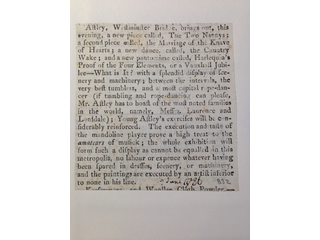 Astley, Westminster Bridge, brings out, this
evening, a new piece called, The Two Nannys;
a second piece called, the Marriage of the Knave
of Hearts; a new dance, called, the Country
Wake; and a new pantomime called, Harlequin's
Proof of the Four Elements, or a Vauxhall Jubi-
lee—What is It? with a splendid display of sce-
nery and machinery; between the intervals, the
very best tumblers, and a most capital rope-dan-
cer (if tumbling and rope-dancing can please,
Mr. Astley has to boast of the most noted families
in the world, namely, Messrs. Laurence and
); Young Astley's exercises will be con-
siderably reinforced. The execution and taste of
the mandoline player prove a high treat to the
amateurs of musick; the whole exhibition will
form such a display as cannot be equalled in this
metropolis, no labour or expence whatever having
been spared in dresses, scenery, or machinery,
and the paintings are executed by an artist inferior
to none in his line.
June